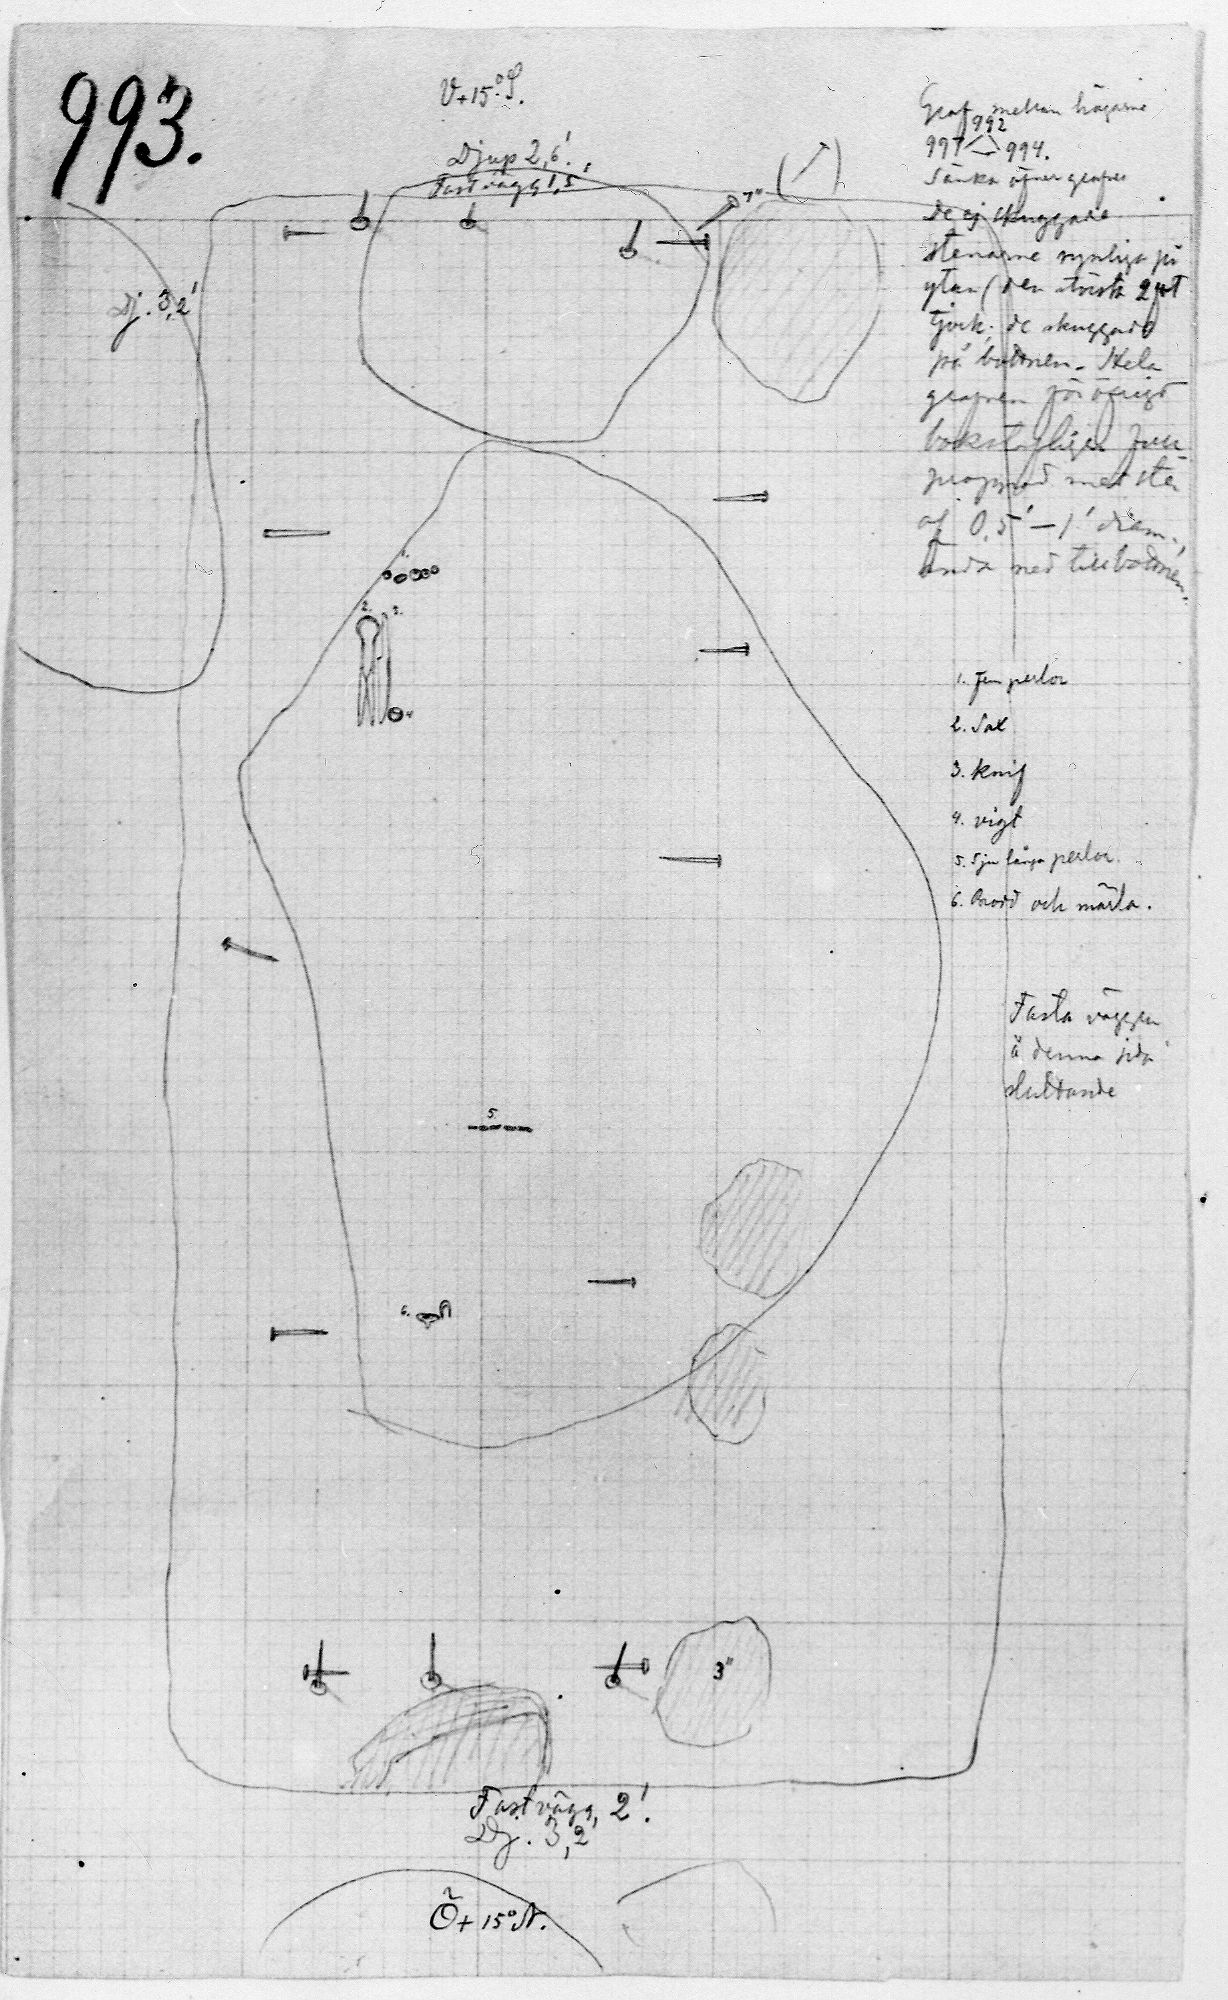 993.
V+15°S.
Djup 2,6'.
Fast vägg 1,5'
7"
Dj. 3,2'
Graf mellan högarne
992
991 994.
Sänka öfver grafven
De ej skuggade
stenarne synliga på
ytan (den största 2 fot
tjock; de skuggade
på bottnen. Hela
grafven för öfrigt
bokstafligen full
proppad med sten
af 0,5'–1' diam.,
ända ned till bottnen.
1.
2. 3.
4.
1. Fem perlor
2. Sax
3. Knif
4. vigt
5. Sju långa perlor.
6. Brodd och märla.
Fasta väggen
å denna sida
sluttande
5.
6.
3"
Fast vägg, 2'.
Dj. 3,2
Ö+15°N.